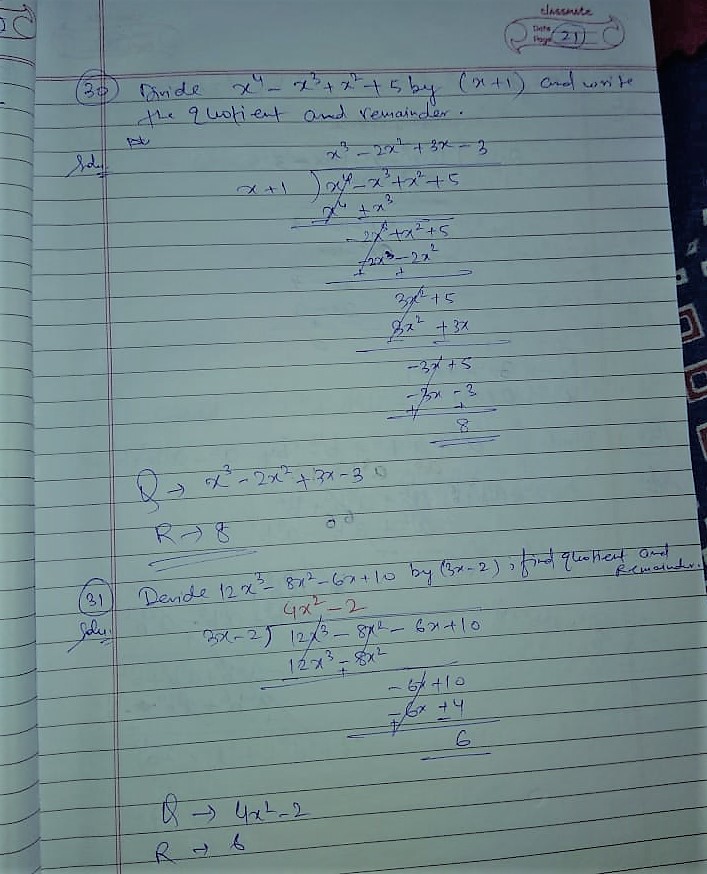 classmate
Date
Page 21
30 Divide x⁴ - x³ + x² + 5 by (x+1) and write
the quotient and remainder.
Soln.
x³ - 2x² + 3x - 3
x+1 ) x⁴ - x³ + x² + 5
x⁴ + x³
-2x³ + x² + 5
-2x³ - 2x²
+ +
3x² + 5
3x² + 3x
-3x + 5
-3x - 3
+ +
8
Q → x³ - 2x² + 3x - 3
R → 8
31 Devide 12x³ - 8x² - 6x + 10 by (3x-2), find quotient and
Remainder.
Soln.
4x² - 2
3x-2 ) 12x³ - 8x² - 6x + 10
12x³ - 8x²
+
-6x + 10
-6x + 4
+
6
Q → 4x² - 2
R → 6